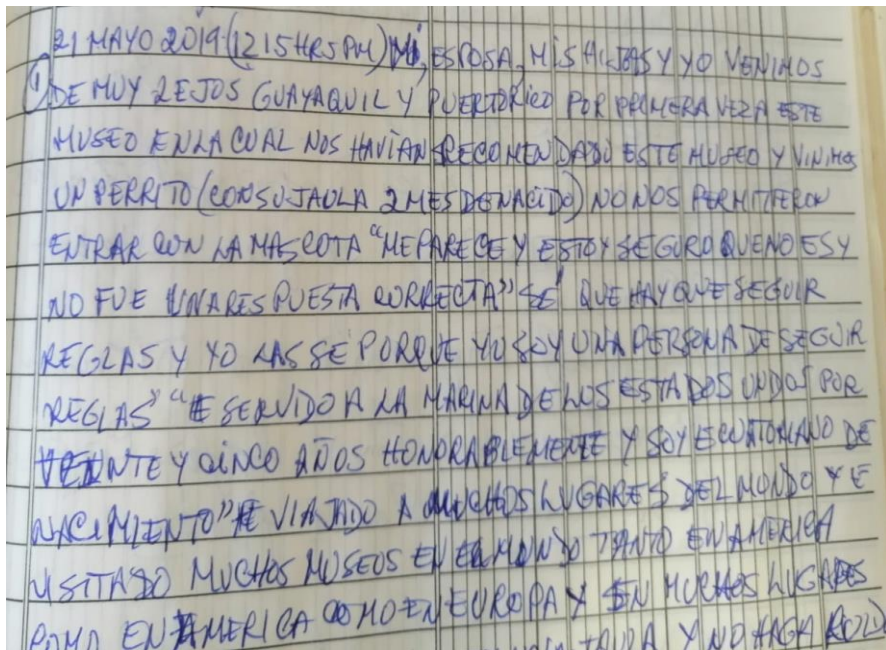 21 MAYO 2019 (12 15HRS PM) Mi, ESPOSA, MIS HIJAS Y YO VENIMOS
① DE MUY LEJOS GUAYAQUIL Y PUERTORICO POR PRIMERA VEZ A ESTE
MUSEO EN LA CUAL NOS HAVÍAN RECOMENDADO ESTE MUSEO Y VINIMOS
UN PERRITO (CON SU JAULA 2 MES DE NACIDO) NO NOS PERMITIERON
ENTRAR CON LA MASCOTA "ME PARECE Y ESTOY SEGURO QUE NO ES Y
NO FUE UNA RESPUESTA CORRECTA" SÉ QUE HAY QUE SEGUIR
REGLAS Y YO LAS SÉ PORQUE YO SOY UNA PERSONA DE SEGUIR
REGLAS" "E SERVIDO A LA MARINA DE LOS ESTADOS UNDOS POR
VEINTE Y CINCO AÑOS HONORABLEMENTE Y SOY ECUATORIANO DE
NACIMIENTO" E VIAJADO A MUCHOS LUGARES DEL MUNDO Y E
VISITADO MUCHOS MUSEOS EN EL MUNDO TANTO EN AMERICA
COMO EN AMERICA COMO EN EUROPA Y EN MUCHOS LUGARES
Y NO HAGA